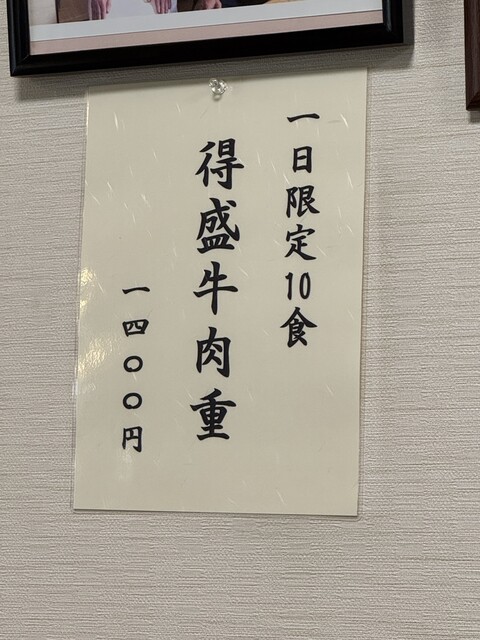 一日限定10食
得盛牛肉重
一四〇〇円